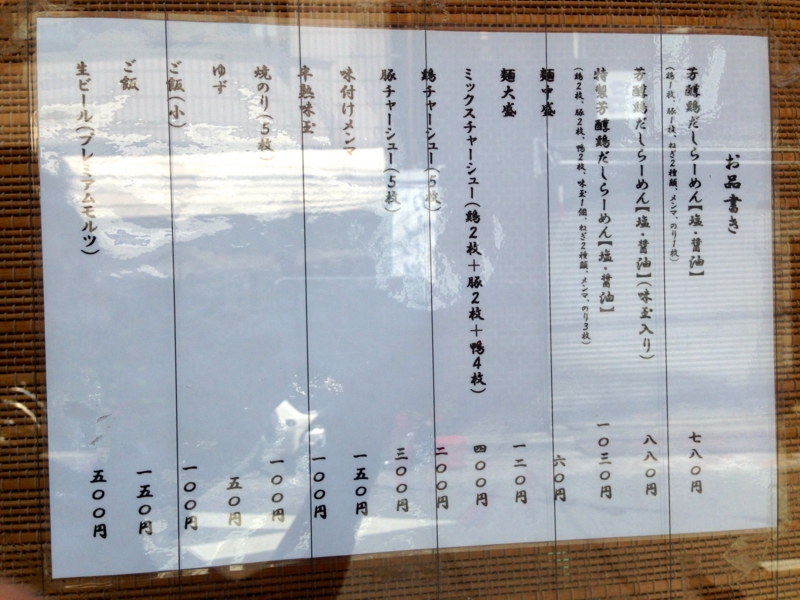 お品書き
芳醇鶏だしらーめん【塩・醤油】 七八〇円
(鶏1枚、豚1枚、ねぎ2種類、メンマ、のり1枚)
芳醇鶏だしらーめん【塩・醤油】(味玉入り) 八八〇円
特製芳醇鶏だしらーめん【塩・醤油】 一〇三〇円
(鶏2枚、豚2枚、鴨2枚、味玉1個、ねぎ2種類、メンマ、のり3枚)
麺中盛 六〇円
麺大盛 一二〇円
ミックスチャーシュー(鶏2枚+豚2枚+鴨4枚) 四〇〇円
鶏チャーシュー(5枚) 二〇〇円
豚チャーシュー(5枚) 三〇〇円
味付けメンマ 一五〇円
半熟味玉 一〇〇円
焼のり(5枚) 一〇〇円
ゆず 五〇円
ご飯(小) 一〇〇円
ご飯 一五〇円
生ビール(プレミアムモルツ) 五〇〇円